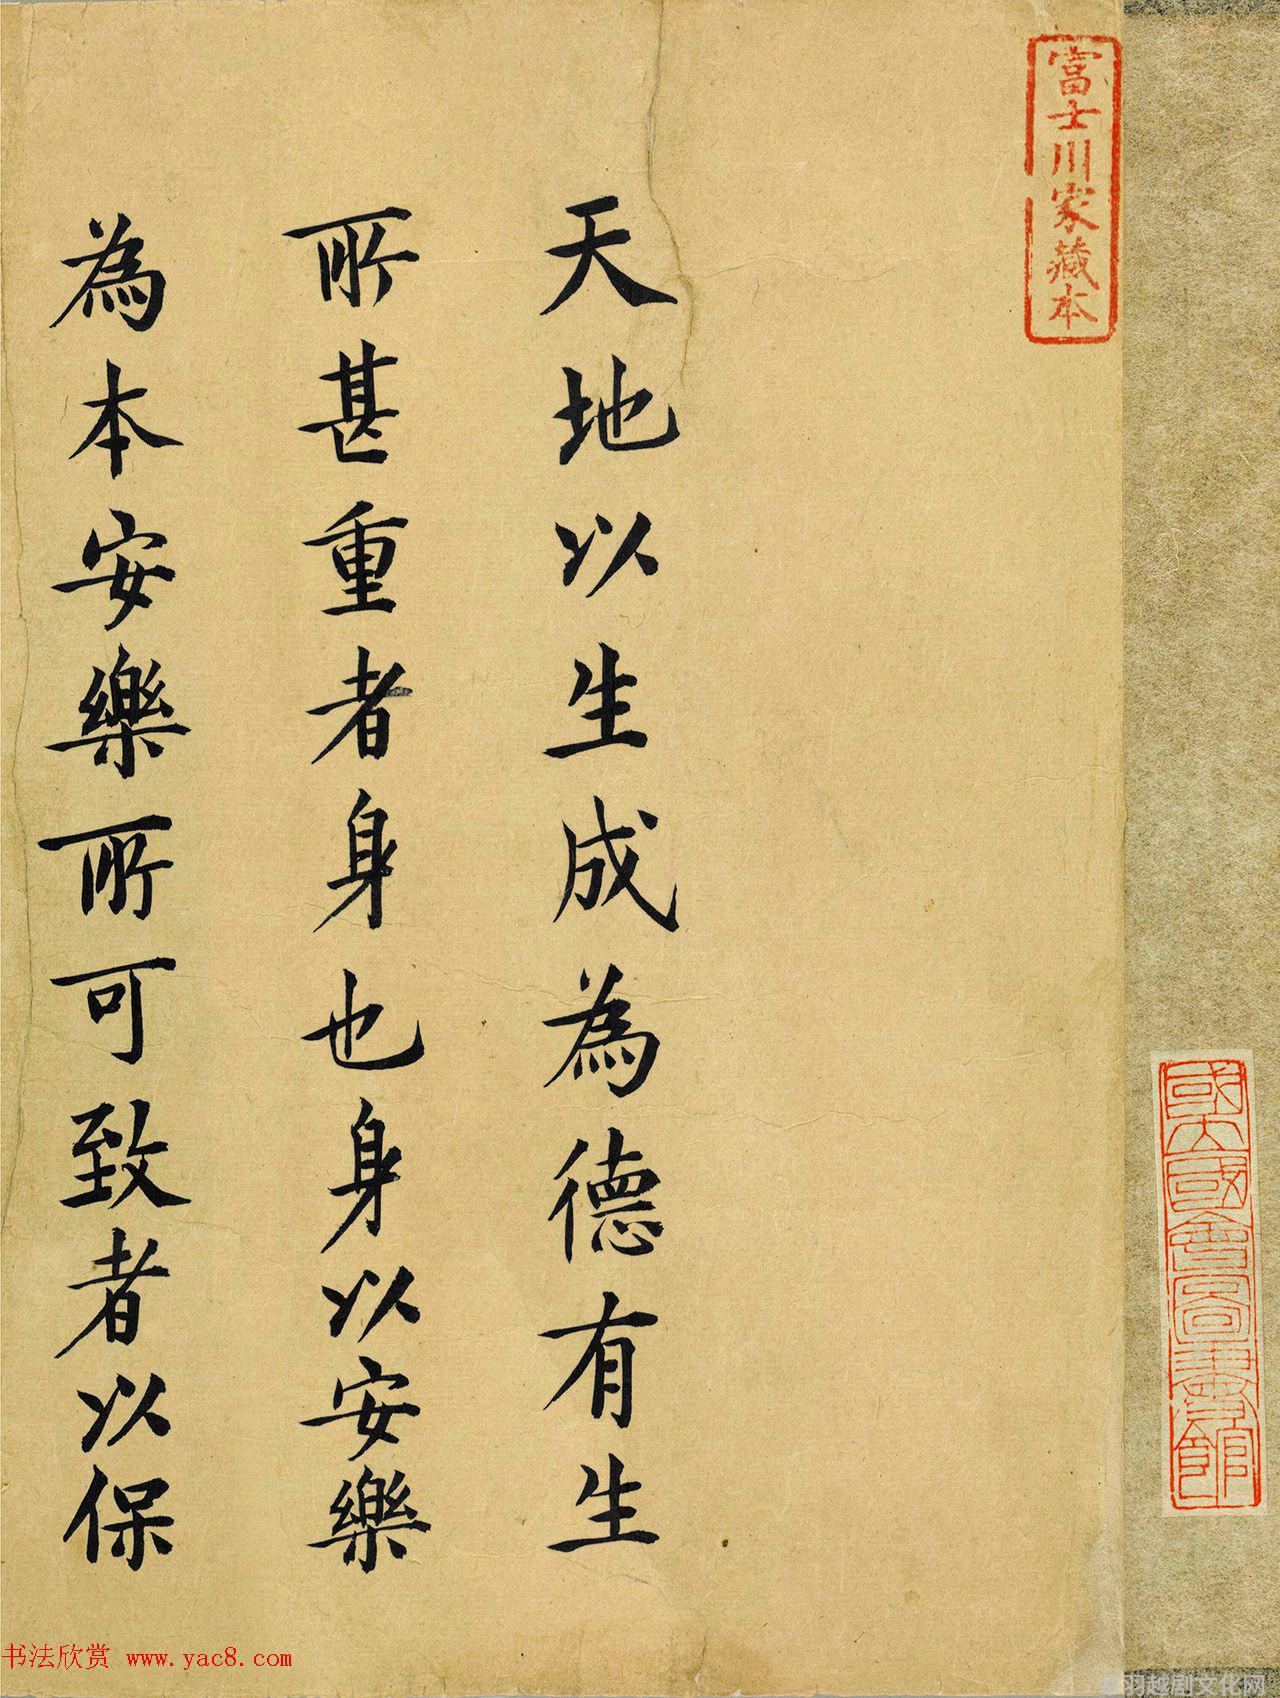 富士川家藏本
國立國會圖書館
天地以生成為德有生
所甚重者身也身以安樂
為本安樂所可致者以保
书法欣赏 www.yac8.com
羽越剧文化网